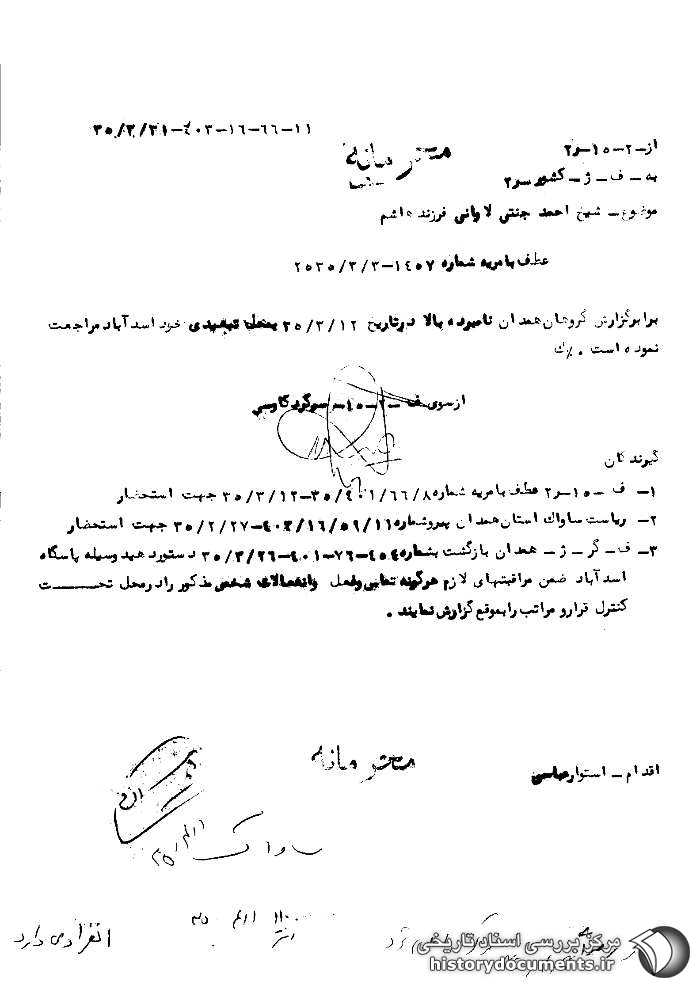 ۱۱-۶۶-۱۶-۴۰۳-۳۵/۳/۳۱
محرمانه
از-۲-۱۵-ر۲
به - ف - ژ - کشور-ر۲
موضوع- شیخ احمد جنتی لادانی فرزند هاشم
عطف بامریه شماره ۱۴۵۷-۲۵۳۵/۳/۳
برابرگزارش گروهان همدان نامبرده بالا درتاریخ ۳۵/۳/۱۲ بمحل تبعیدی خود اسدآباد مراجعت
نموده است .
ازسوی ف -۲-۱۵- سرگرد کاوسی
گیرندگان
۱- ف -۱۵-ر۲ عطف بامریه شماره ۳۵/۴۰۱/۶۶/۸-۳۵/۳/۱۲ جهت استحضار
۲- ریاست ساواک استان همدان پیروشماره ۴۰۳/۱۶/۵۹/۱۱-۳۵/۲/۲۷ جهت استحضار
۳- ف-گر-ژ- همدان بازگشت بشماره ۴۵۴-۷۶-۴۰۱-۳۵/۳/۲۶ دستور دهید وسیله پاسگاه
اسدآباد ضمن مراقبتهای لازم هرگونه تماس وفعل وانفعالات شخص مذکور را درمحل تحت
کنترل قرارو مراتب را بموقع گزارش نمایند .
محرمانه
اقدام - استوار عباسی
ساواک
انفرادی دارد
مرکز بررسی اسناد تاریخی
historydocuments.ir